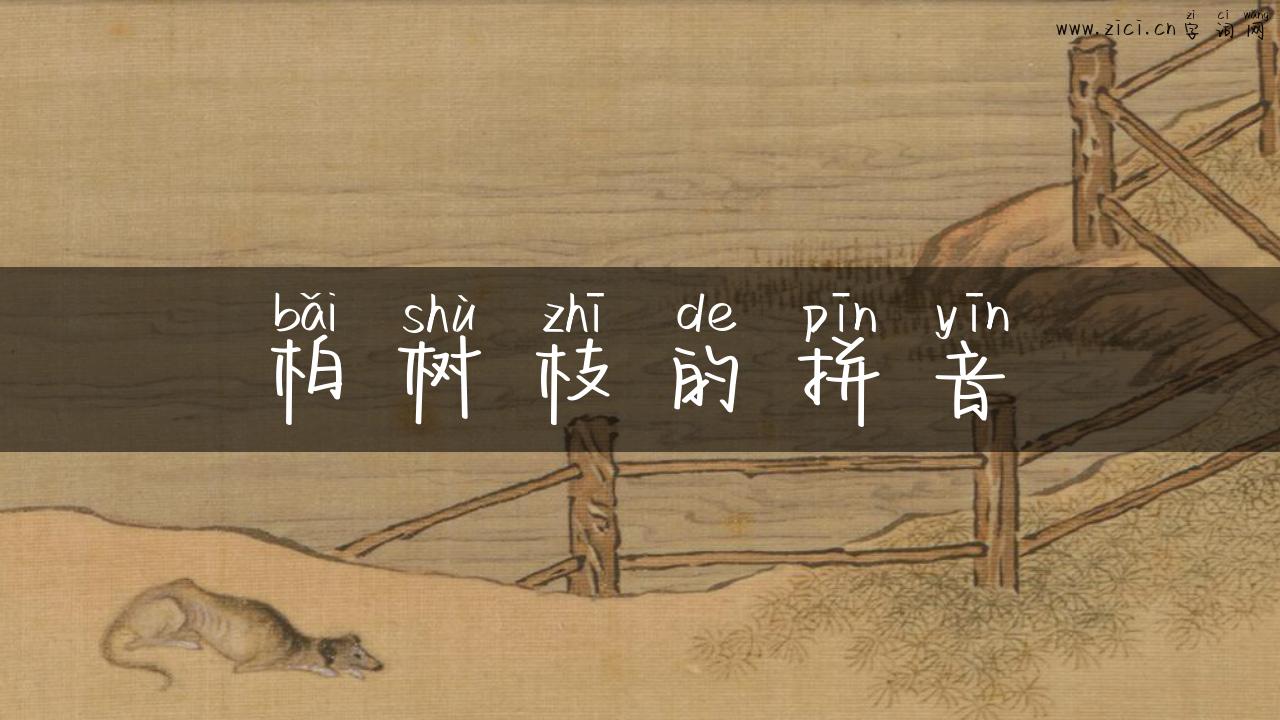 zì cí wǎng
www.zici.cn 字词网
bǎi shù zhī de pīn yīn
柏树枝的拼音